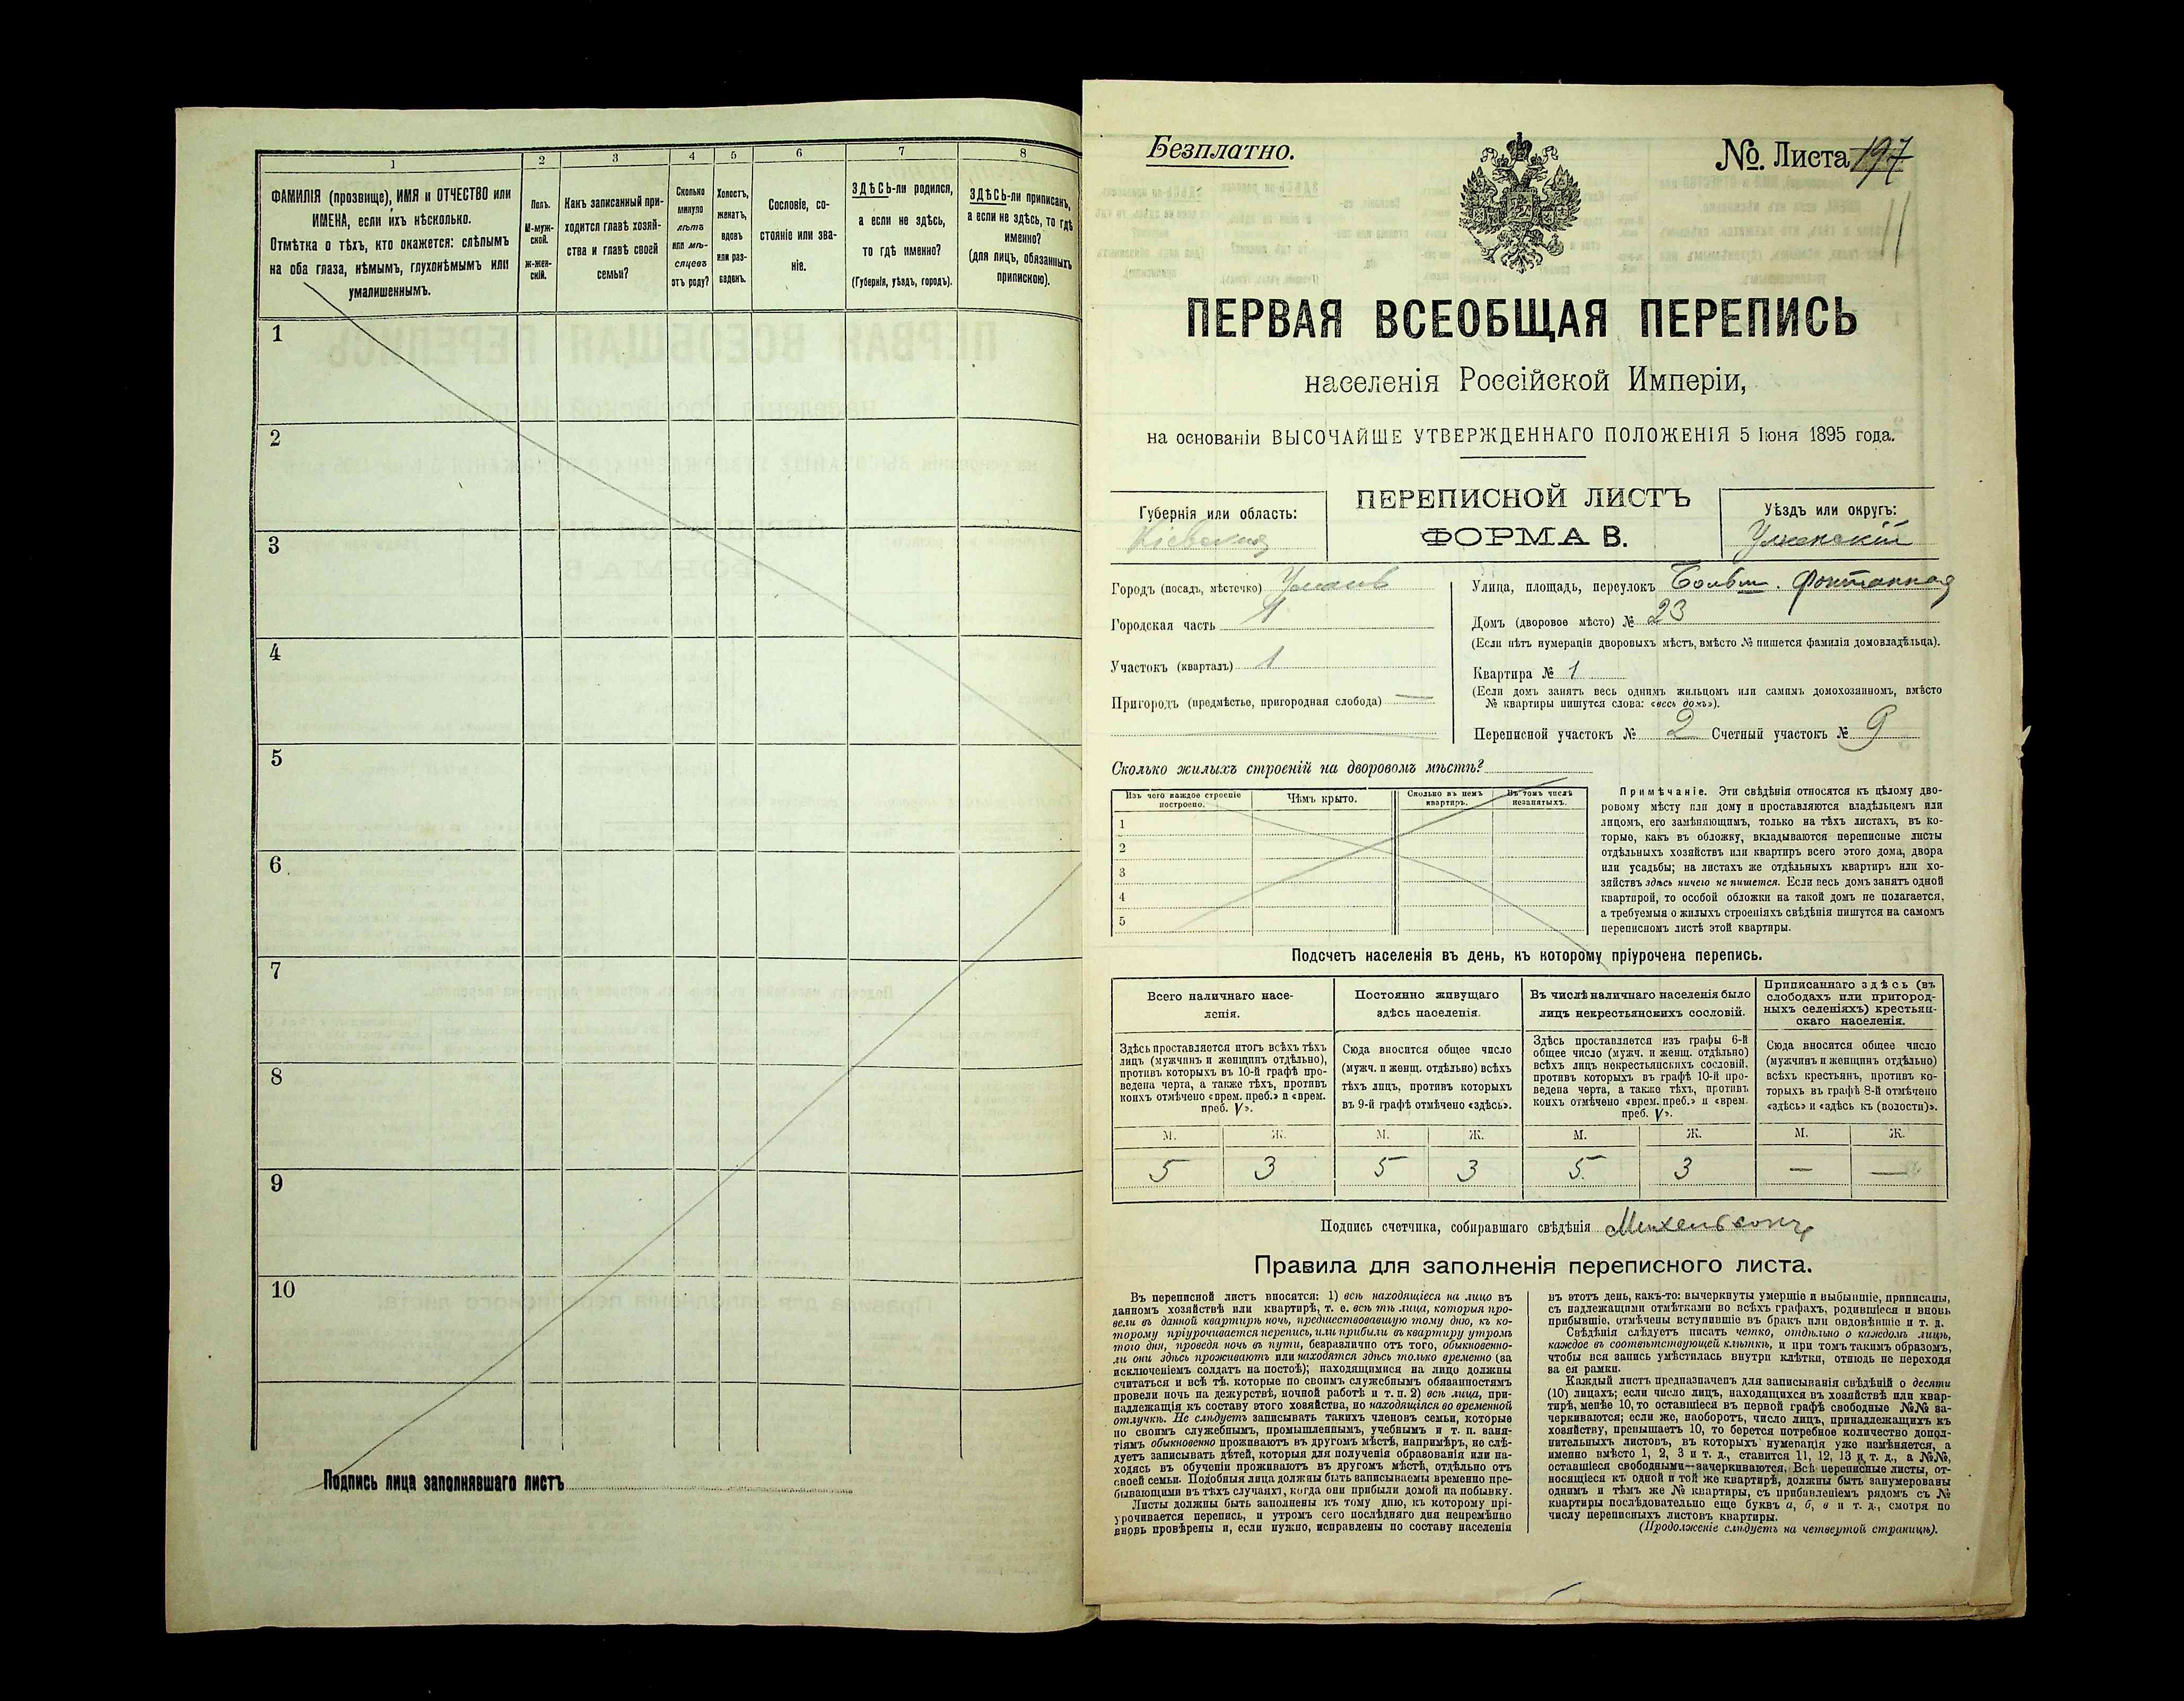 1
2
3
4
5
6
7
8
ФАМИЛІЯ (прозвище), ИМЯ и ОТЧЕСТВО или
ИМЕНА, если ихъ нѣсколько.
Отмѣтка о тѣхъ, кто окажется: слѣпымъ
на оба глаза, нѣмымъ, глухонѣмымъ или
умалишеннымъ.
Полъ.
М-муж-
ской.
ж-жен-
скій.
Какъ записанный при-
ходится главѣ хозяй-
ства и главѣ своей
семьи?
Сколько
минуло
лѣтъ
или мѣ-
сяцевъ
отъ роду?
Холостъ,
женатъ,
вдовъ
или раз-
веденъ.
Сословіе, со-
стояніе или зва-
ніе.
ЗДѢСЬ-ли родился,
а если не здѣсь,
то гдѣ именно?
(Губернія, уѣздъ, городъ).
ЗДѢСЬ-ли приписанъ,
а если не здѣсь, то гдѣ
именно?
(для лицъ, обязанныхъ
припискою).
1
2
3
4
5
6
7
8
9
10
Подпись лица заполнявшаго листъ
Безплатно.
№ Листа 197
11
ПЕРВАЯ ВСЕОБЩАЯ ПЕРЕПИСЬ
населенія Россійской Имперіи,
на основаніи ВЫСОЧАЙШЕ УТВЕРЖДЕННАГО ПОЛОЖЕНІЯ 5 Іюня 1895 года.
Губернія или область:
Кіевская
ПЕРЕПИСНОЙ ЛИСТЪ
ФОРМА В.
Уѣздъ или округъ:
Уманскій
Городъ (посадъ, мѣстечко) Умань
Городская часть
Участокъ (кварталъ) 1
Пригородъ (предмѣстье, пригородная слобода) —
Улица, площадь, переулокъ Больш. Фонтанная
Домъ (дворовое мѣсто) № 23
(Если нѣтъ нумераціи дворовыхъ мѣстъ, вмѣсто № пишется фамилія домовладѣльца).
Квартира № 1
(Если домъ занятъ весь однимъ жильцомъ или самимъ домохозяиномъ, вмѣсто
№ квартиры пишутся слова: «весь домъ»).
Переписной участокъ № 2 Счетный участокъ № 9
Сколько жилыхъ строеній на дворовомъ мѣстѣ?
Изъ чего каждое строеніе
построено.
Чѣмъ крыто.
Сколько въ немъ
квартиръ.
Въ томъ числѣ
незанятыхъ.
1
2
3
4
5
Примѣчаніе. Эти свѣдѣнія относятся къ цѣлому дво-
ровому мѣсту или дому и проставляются владѣльцемъ или
лицомъ, его замѣняющимъ, только на тѣхъ листахъ, въ ко-
торые, какъ въ обложку, вкладываются переписные листы
отдѣльныхъ хозяйствъ или квартиръ всего этого дома, двора
или усадьбы; на листахъ же отдѣльныхъ квартиръ или хо-
зяйствъ здѣсь ничего не пишется. Если весь домъ занятъ одной
квартирой, то особой обложки на такой домъ не полагается,
а требуемыя о жилыхъ строеніяхъ свѣдѣнія пишутся на самомъ
переписномъ листѣ этой квартиры.
Подсчетъ населенія въ день, къ которому пріурочена перепись.
Всего наличнаго насе-
ленія.
Постоянно живущаго
здѣсь населенія.
Въ числѣ наличнаго населенія было
лицъ некрестьянскихъ сословій.
Приписаннаго здѣсь (въ
слободахъ или пригород-
ныхъ селеніяхъ) крестьян-
скаго населенія.
Здѣсь проставляется итогъ всѣхъ тѣхъ
лицъ (мужчинъ и женщинъ отдѣльно),
противъ которыхъ въ 10-й графѣ про-
ведена черта, а также тѣхъ, противъ
коихъ отмѣчено «врем. преб.» и «врем.
преб. V».
Сюда вносится общее число
(мужч. и женщ. отдѣльно) всѣхъ
тѣхъ лицъ, противъ которыхъ
въ 9-й графѣ отмѣчено «здѣсь».
Здѣсь проставляется изъ графы 6-й
общее число (мужч. и женщ. отдѣльно)
всѣхъ лицъ некрестьянскихъ сословій,
противъ которыхъ въ графѣ 10-й про-
ведена черта, а также тѣхъ, противъ
коихъ отмѣчено «врем. преб.» и «врем.
преб. V».
Сюда вносится общее число
(мужчинъ и женщинъ отдѣльно)
всѣхъ крестьянъ, противъ ко-
торыхъ въ графѣ 8-й отмѣчено
«здѣсь» и «здѣсь къ (волости)».
М. Ж. М. Ж. М. Ж. М. Ж.
5 3 5 3 5 3 — —
Подпись счетчика, собиравшаго свѣдѣнія Михельсонъ
Правила для заполненія переписного листа.
Въ переписной листъ вносятся: 1) всѣ находящіеся на лицо въ
данномъ хозяйствѣ или квартирѣ, т. е. всѣ тѣ лица, которыя про-
вели въ данной квартирѣ ночь, предшествовавшую тому дню, къ ко-
торому пріурочивается перепись, или прибыли въ квартиру утромъ
того дня, проведя ночь въ пути, безразлично отъ того, обыкновенно-
ли они здѣсь проживаютъ или находятся здѣсь только временно (за
исключеніемъ солдатъ на постоѣ); находящимися на лицо должны
считаться и всѣ тѣ, которые по своимъ служебнымъ обязанностямъ
провели ночь на дежурствѣ, ночной работѣ и т. п. 2) всѣ лица, при-
надлежащія къ составу этого хозяйства, но находящіяся во временной
отлучкѣ. Не слѣдуетъ записывать такихъ членовъ семьи, которые
по своимъ служебнымъ, промышленнымъ, учебнымъ и т. п. заня-
тіямъ обыкновенно проживаютъ въ другомъ мѣстѣ, напримѣръ, не слѣ-
дуетъ записывать дѣтей, которыя для полученія образованія или на-
ходясь въ обученіи проживаютъ въ другомъ мѣстѣ, отдѣльно отъ
своей семьи. Подобныя лица должны быть записываемы временно пре-
бывающими въ тѣхъ случаяхъ, когда они прибыли домой на побывку.
Листы должны быть заполнены къ тому дню, къ которому прі-
урочивается перепись, и утромъ сего послѣдняго дня непремѣнно
вновь провѣрены и, если нужно, исправлены по составу населенія
въ этотъ день, какъ-то: вычеркнуты умершіе и выбывшіе, приписаны,
съ надлежащими отмѣтками во всѣхъ графахъ, родившіеся и вновь
прибывшіе, отмѣчены вступившіе въ бракъ или овдовѣвшіе и т. д.
Свѣдѣнія слѣдуетъ писать четко, отдѣльно о каждомъ лицѣ,
каждое въ соотвѣтствующей клѣткѣ, и при томъ такимъ образомъ,
чтобы вся запись умѣстилась внутри клѣтки, отнюдь не переходя
за ея рамки.
Каждый листъ предназначенъ для записыванія свѣдѣній о десяти
(10) лицахъ; если число лицъ, находящихся въ хозяйствѣ или квар-
тирѣ, менѣе 10, то оставшіеся въ первой графѣ свободные №№ за-
черкиваются; если же, наоборотъ, число лицъ, принадлежащихъ къ
хозяйству, превышаетъ 10, то берется потребное количество допол-
нительныхъ листовъ, въ которыхъ нумерація уже измѣняется, а
именно вмѣсто 1, 2, 3 и т. д., ставится 11, 12, 13 и т. д., а №№,
оставшіеся свободными—зачеркиваются. Всѣ переписные листы, от-
носящіеся къ одной и той же квартирѣ, должны быть занумерованы
однимъ и тѣмъ же № квартиры, съ прибавленіемъ рядомъ съ №
квартиры послѣдовательно еще буквъ а, б, в и т. д., смотря по
числу переписныхъ листовъ квартиры.
(Продолженіе слѣдуетъ на четвертой страницѣ).